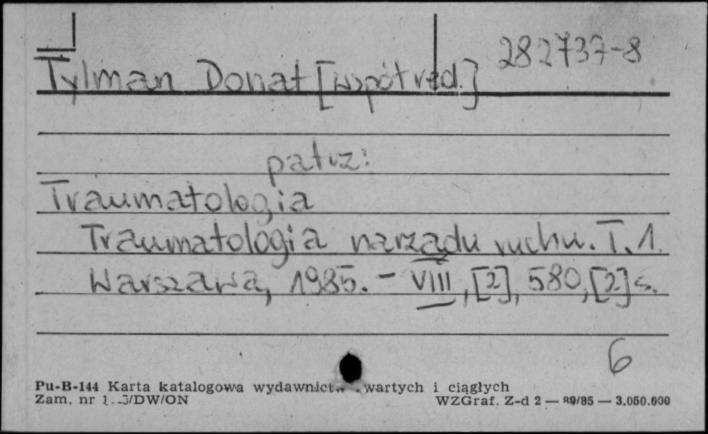 282737-8
Tylman Donat [współred.]
patrz:
Traumatologia
Traumatologia narządu ruchu. T. 1.
Warszawa, 1985. - VIII, [2], 580, [2] s.
6
Pu-B-144 Karta katalogowa wydawnictw zwartych i ciągłych
Zam. nr /DW/ON WZGraf. Z-d 2 — 89/85 — 3.050.000